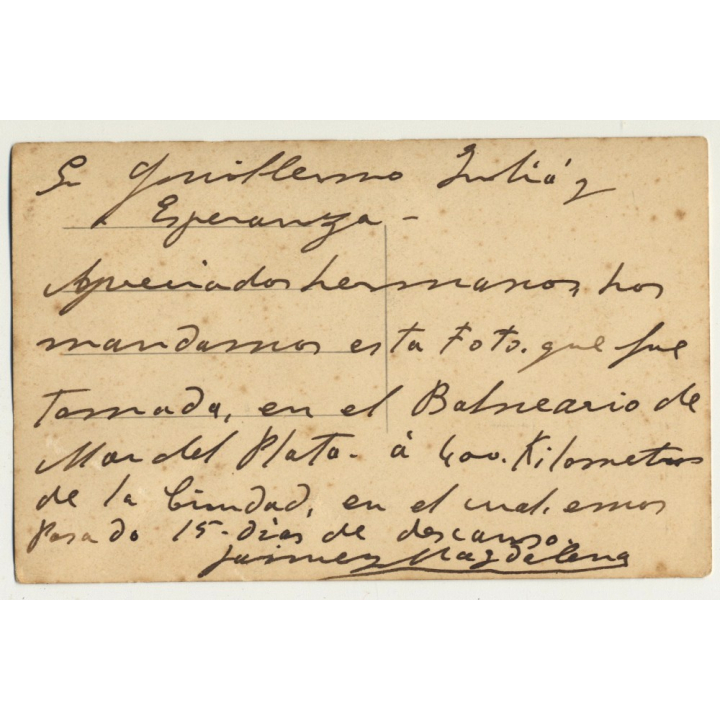 Sr Guillermo Juliá y
Esperanza -
Apreciados hermanos, hos
mandamos esta Foto. que fue
Tomada, en el Balneario de
Mar del Plata - á 400. Kilometros
de la Ciudad, en el cual. emos
Pasado 15 - dias de descanso.
Jaime y Magdalena